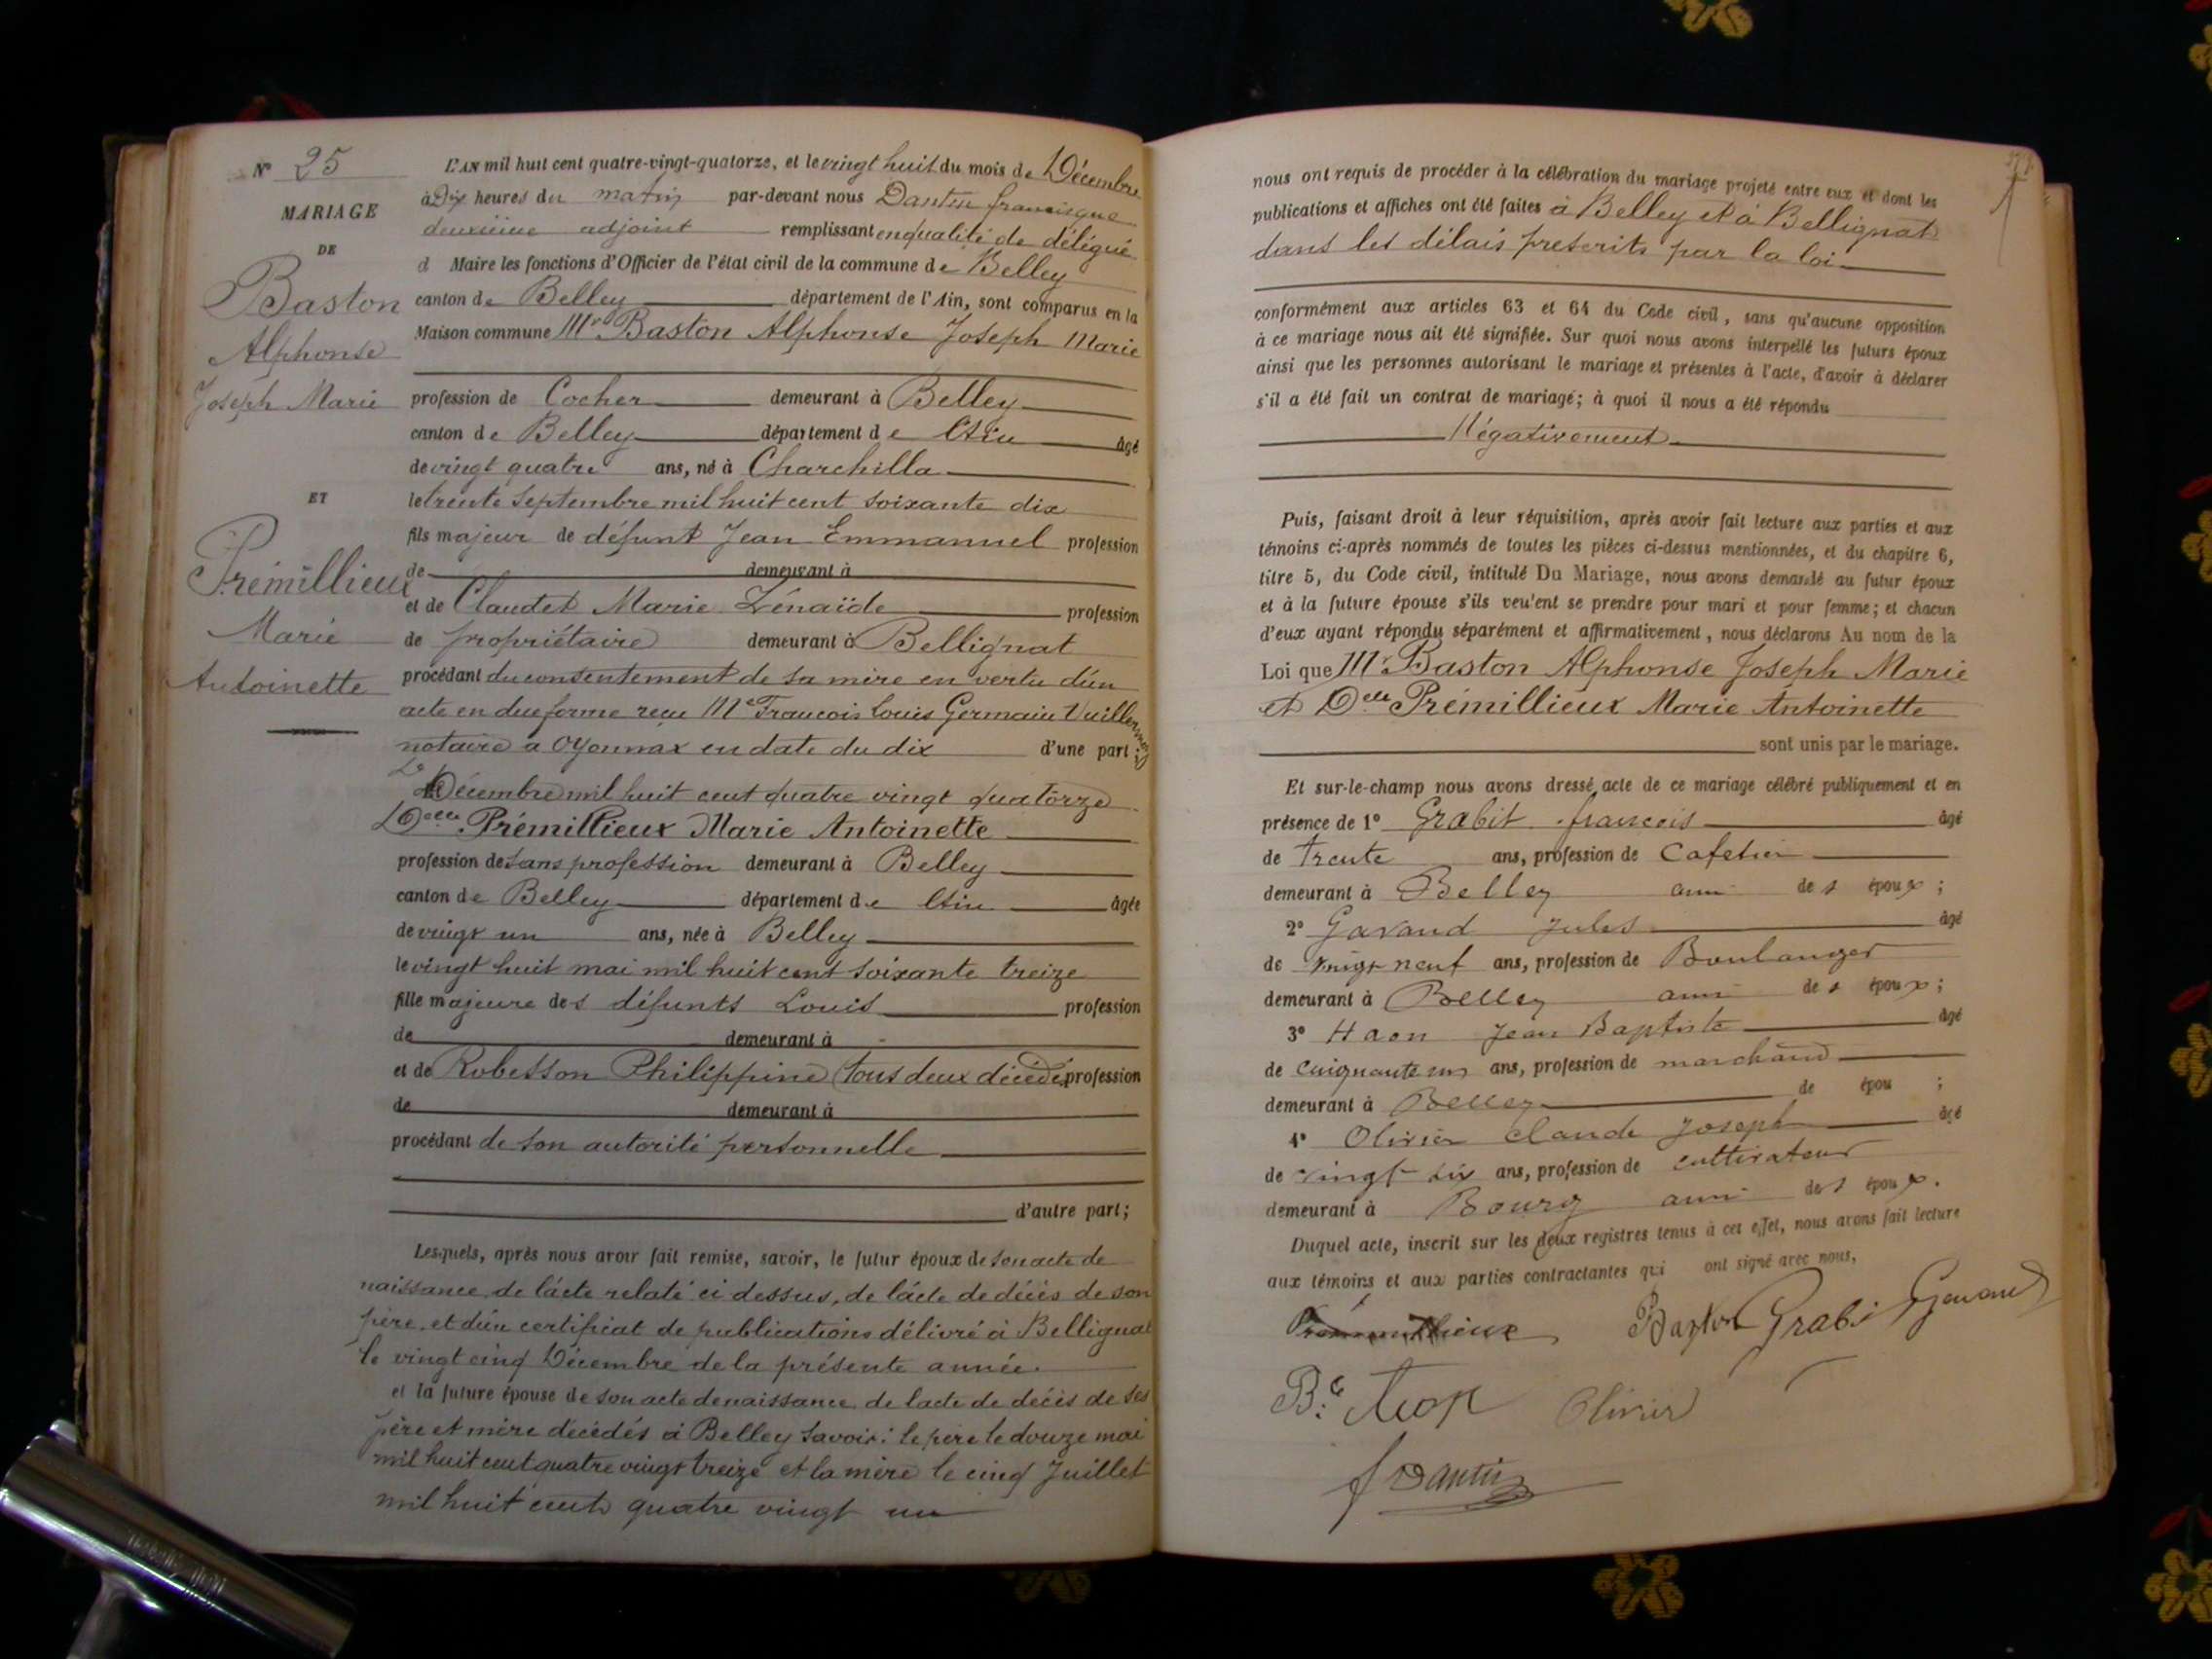 N° 25
MARIAGE
DE
Baston
Alphonse
Joseph Marie
ET
Prémillieux
Marie
Antoinette
L'AN mil huit cent quatre-vingt-quatorze, et le vingt huit du mois de Décembre
à Dix heures du matin par-devant nous Dantin francisque
deuxième adjoint remplissant en qualité de délégué
d Maire les fonctions d'Officier de l'état civil de la commune de Belley
canton de Belley département de l'Ain, sont comparus en la
Maison commune Mr Baston Alphonse Joseph Marie
profession de Cocher demeurant à Belley
canton de Belley département de l'Ain âgé
de vingt quatre ans, né à Charchilla
le trente Septembre mil huit cent soixante dix
fils majeur de défunt Jean Emmanuel profession
de demeurant à
et de Claudet Marie Zénaïde profession
de propriétaire demeurant à Bellignat
procédant du consentement de sa mère en vertu d'un
acte en due forme reçu Me Francois Louis Germain Vuillermoz
notaire a Oyonnax en date du dix d'une part;
Décembre mil huit cent quatre vingt quatorze
Delle Prémillieux Marie Antoinette
profession de sans profession demeurant à Belley
canton de Belley département de l'Ain âgée
de vingt un ans, née à Belley
le vingt huit mai mil huit cent soixante treize
fille majeure des défunts Louis profession
de demeurant à
et de Robesson Philippine (tous deux décédés) profession
de demeurant à
procédant de son autorité personnelle
d'autre part;
Lesquels, après nous avoir fait remise, savoir, le futur époux de son acte de
naissance, de l'acte relaté ci dessus, de l'acte de décès de son
père, et d'un certificat de publications délivré à Bellignat
le vingt cinq Décembre de la présente année.
et la future épouse de son acte de naissance, de l'acte de décès de ses
père et mère décédés à Belley Savoir: le père le douze mai
mil huit cent quatre vingt treize et la mère le cinq Juillet
mil huit cent quatre vingt un
nous ont requis de procéder à la célébration du mariage projeté entre eux et dont les
publications et affiches ont été faites à Belley et à Bellignat
dans les délais prescrits par la loi
conformément aux articles 63 et 64 du Code civil, sans qu'aucune opposition
à ce mariage nous ait été signifiée. Sur quoi nous avons interpellé les futurs époux
ainsi que les personnes autorisant le mariage et présentes à l'acte, d'avoir à déclarer
s'il a été fait un contrat de mariage; à quoi il nous a été répondu
Négativement
Puis, faisant droit à leur réquisition, après avoir fait lecture aux parties et aux
témoins ci-après nommés de toutes les pièces ci-dessus mentionnées, et du chapitre 6,
titre 5, du Code civil, intitulé Du Mariage, nous avons demandé au futur époux
et à la future épouse s'ils veulent se prendre pour mari et pour femme; et chacun
d'eux ayant répondu séparément et affirmativement, nous déclarons Au nom de la
Loi que Mr Baston Alphonse Joseph Marie
et Delle Prémillieux Marie Antoinette
sont unis par le mariage.
Et sur-le-champ nous avons dressé acte de ce mariage célébré publiquement et en
présence de 1° Grabit francois âgé
de trente ans, profession de Cafetier
demeurant à Belley ami des époux;
2° Gavand Jules âgé
de vingt neuf ans, profession de Boulanger
demeurant à Belley ami des époux;
3° Haon Jean Baptiste âgé
de cinquante un ans, profession de marchand
demeurant à Belley de épou ;
4° Olivier Claude Joseph âgé
de vingt six ans, profession de cultivateur
demeurant à Bourg ami des époux.
Duquel acte, inscrit sur les deux registres tenus à cet effet, nous avons fait lecture
aux témoins et aux parties contractantes qui ont signé avec nous,
Baston Grabit Gavand
Olivier
f Dantin